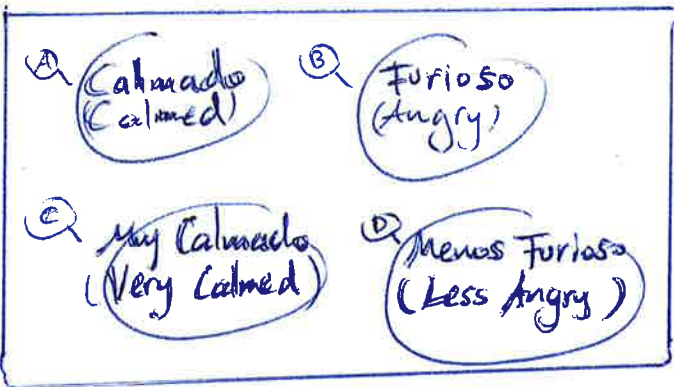 A
Calmado
(Calmed)
B
Furioso
(Angry)
C
Muy Calmado
(Very Calmed)
D
Menos Furioso
(Less Angry)